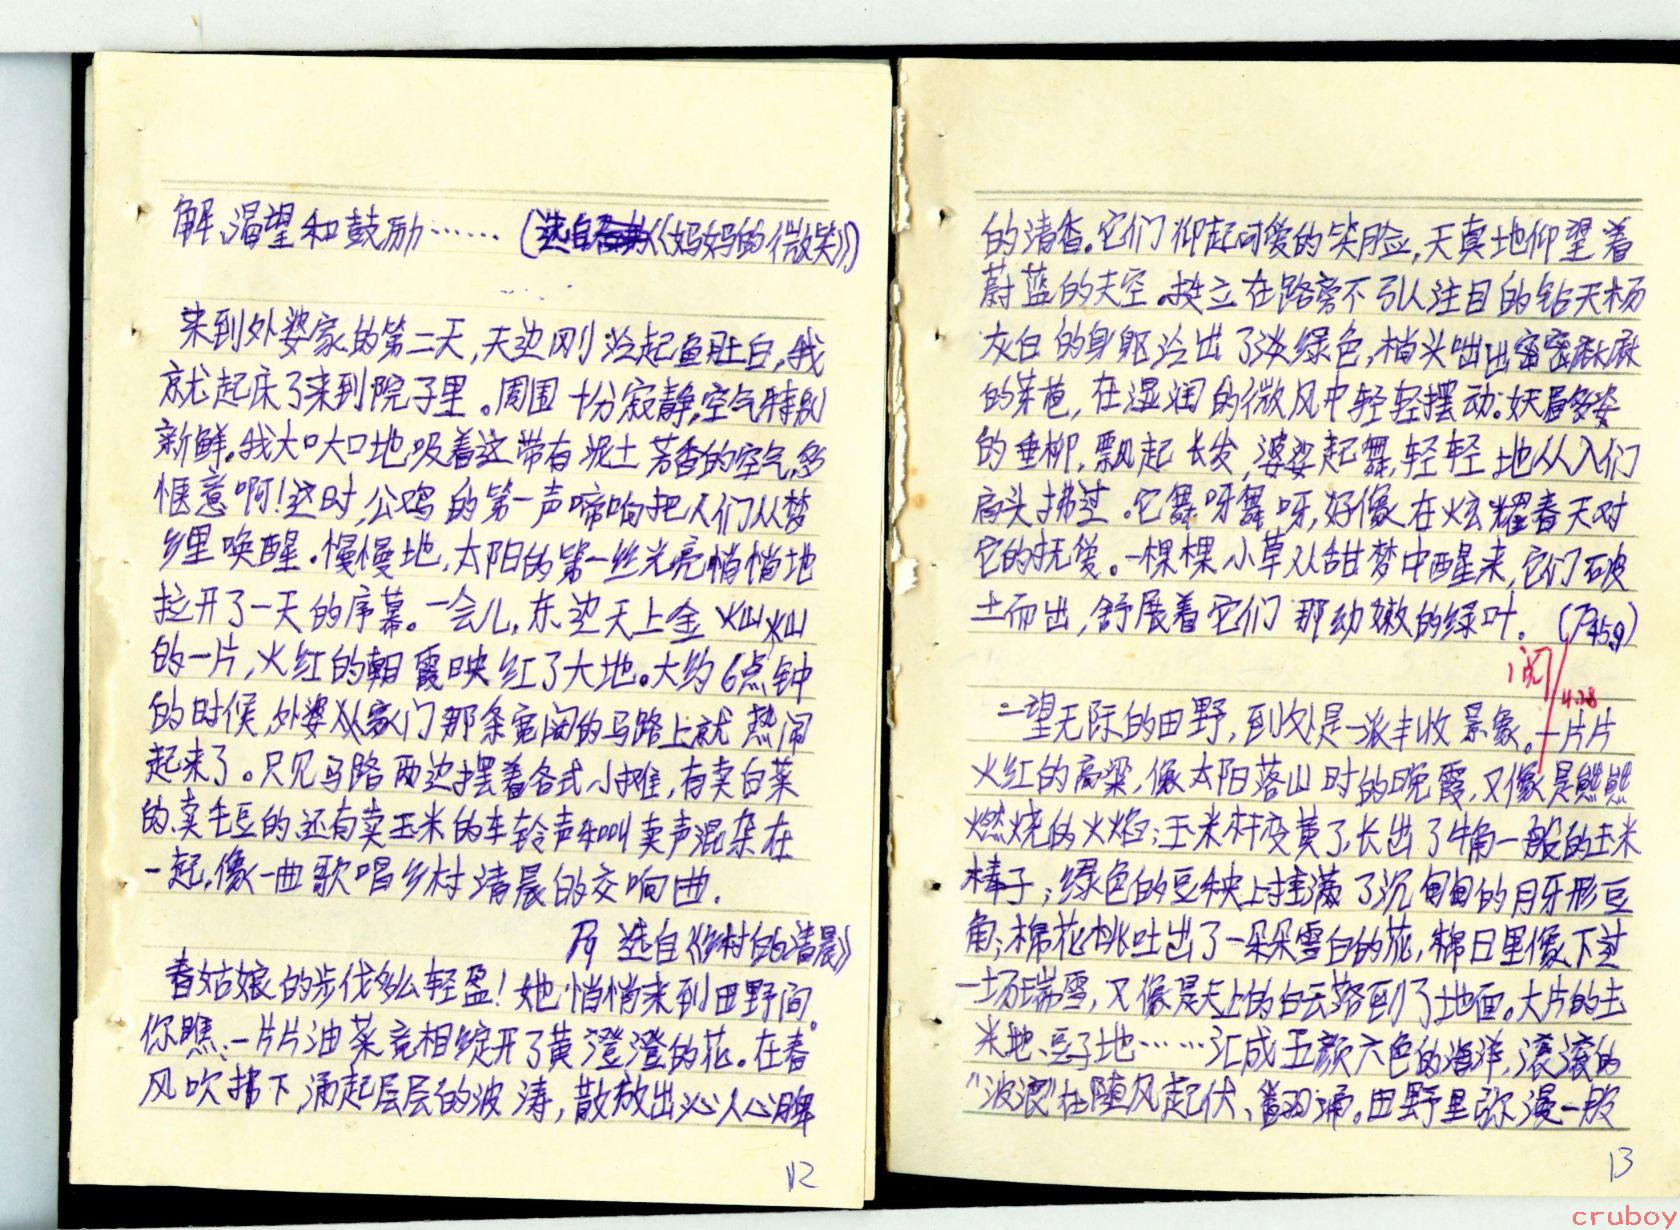 解、渴望和鼓励……(选自《妈妈的微笑》)
来到外婆家的第二天,天边刚泛起鱼肚白,我
就起床了来到院子里。周围十分寂静,空气特别
新鲜。我大口大口地吸着这带有泥土芳香的空气,多
惬意啊!这时,公鸡的第一声啼响把人们从梦
乡里唤醒。慢慢地,太阳的第一丝光亮悄悄地
拉开了一天的序幕。一会儿,东边天上金灿灿
的一片,火红的朝霞映红了大地。大约6点钟
的时候,外婆从家门那条宽阔的马路上就热闹
起来了。只见马路两边摆着各式小摊,有卖白菜
的、卖毛豆的、还有卖玉米的车铃声和叫卖声混杂在
一起,像一曲歌唱乡村清晨的交响曲.
P9 选自《乡村的清晨》
春姑娘的步伐多么轻盈!她悄悄来到田野间。
你瞧、一片片油菜竞相绽开了黄澄澄的花。在春
风吹拂下,涌起层层的波涛,散放出沁人心脾
12
的清香。它们仰起可爱的笑脸,天真地仰望着
蔚蓝的天空。挺立在路旁不引人注目的钻天杨
灰白的身躯泛出了淡绿色,梢头咄出密密
的芽苞,在湿润的微风中轻轻摆动;妖眉多姿
的垂柳,飘起长发,婆娑起舞,轻轻地从人们
肩头拂过。它舞呀舞呀,好像在炫耀春天对
它的抚爱。一棵棵小草从甜梦中醒来,它们破
土而出,舒展着它们那幼嫩的绿叶。(P45.9)
阅
4.28
一望无际的田野,到处是一派丰收景象。一片片
火红的高粱,像太阳落山时的晚霞,又像是熊熊
燃烧的火焰;玉米秆变黄了,长出了牛角一般的玉米
棒子;绿色的豆秧上挂满了沉甸甸的月牙形豆
角;棉花桃吐出了一朵朵雪白的花,棉田里像下过
一场瑞雪,又像是天上的白云落到了地面。大片的玉
米地、豆子地……汇成五颜六色的海洋,滚滚的
"波浪"在随风起伏、翻涌。田野里弥漫一股
13
cruboy